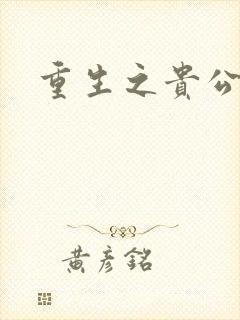 重生之貴公
黃彥銘